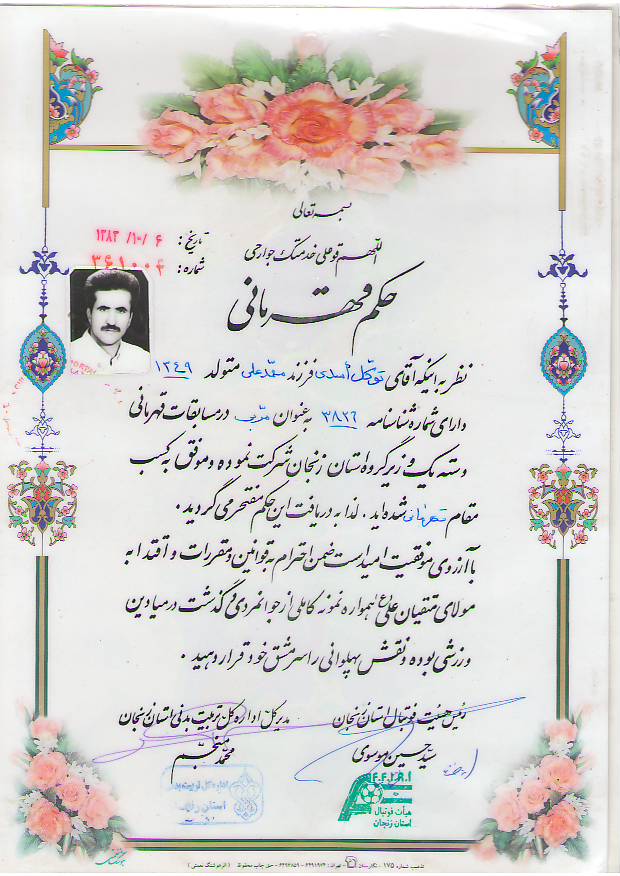 بسمه تعالی
اللهم قو علی خدمتک جوارحی
تاریخ : ۱۳۸۳/۱۰/۶
شماره : ۳۶۱۰۰۶
حکم قهرمانی
نظر به اینکه آقای توکل اسدی فرزند محمدعلی متولد ۱۳۴۹
دارای شماره شناسنامه ۳۸۲۶ به عنوان مربی در مسابقات قهرمانی
دسته یک و زیرگروه استان زنجان شرکت نموده و موفق به کسب
مقام قهرمانی شده اید . لذا به دریافت این حکم مفتخر می گردید .
با آرزوی موفقیت امید است ضمن احترام به قوانین و مقررات و اقتدا به
مولای متقیان علی (ع) همواره نمونه کاملی از جوانمردی و گذشت در میادین
ورزشی بوده و نقش پهلوانی را سرمشق خود قرار دهید .
رئیس هیئت فوتبال استان زنجان
سید حسین موسوی
مدیر کل اداره کل تربیت بدنی استان زنجان
محمد منجم
F.F.I.R.I
هیأت فوتبال
استان زنجان